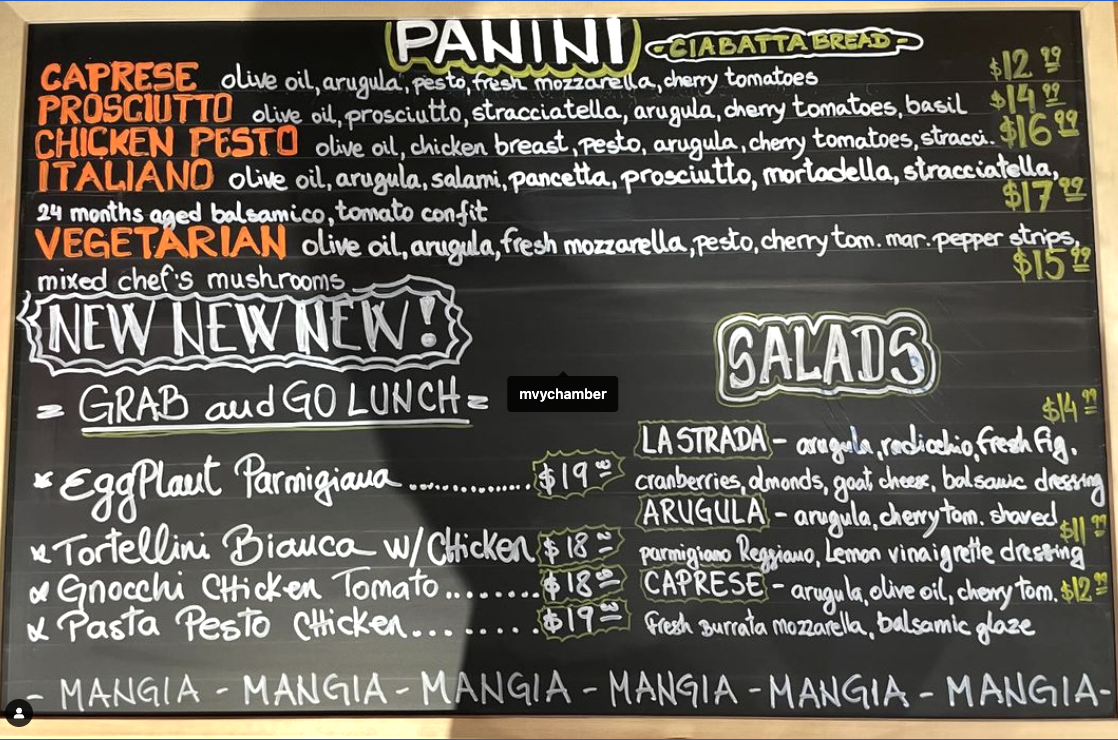 PANINI -CIABATTA BREAD-
CAPRESE olive oil, arugula, pesto, fresh mozzarella, cherry tomatoes $12.99
PROSCIUTTO olive oil, prosciutto, stracciatella, arugula, cherry tomatoes, basil $14.99
CHICKEN PESTO olive oil, chicken breast, pesto, arugula, cherry tomatoes, stracci. $16.99
ITALIANO olive oil, arugula, salami, pancetta, prosciutto, mortadella, stracciatella,
24 months aged balsamico, tomato confit $17.99
VEGETARIAN olive oil, arugula, fresh mozzarella, pesto, cherry tom. mar. pepper strips,
mixed chef's mushrooms $15.99
NEW NEW NEW!
= GRAB and GO LUNCH =
* EggPlant Parmigiana .............. $19
* Tortellini Bianca w/CHicken $18
* Gnocchi CHicken Tomato ........ $18
* Pasta Pesto CHicken ........ $19
SALADS
$14.99
LA STRADA - arugula, radicchio, fresh fig,
cranberries, almonds, goat cheese, balsamic dressing
ARUGULA - arugula, cherry tom. shaved $11.99
parmigiano Reggiano, Lemon vinaigrette dressing
CAPRESE - arugula, olive oil, cherry tom. $12.99
fresh Burrata mozzarella, balsamic glaze
- MANGIA - MANGIA - MANGIA - MANGIA - MANGIA - MANGIA -
mvychamber